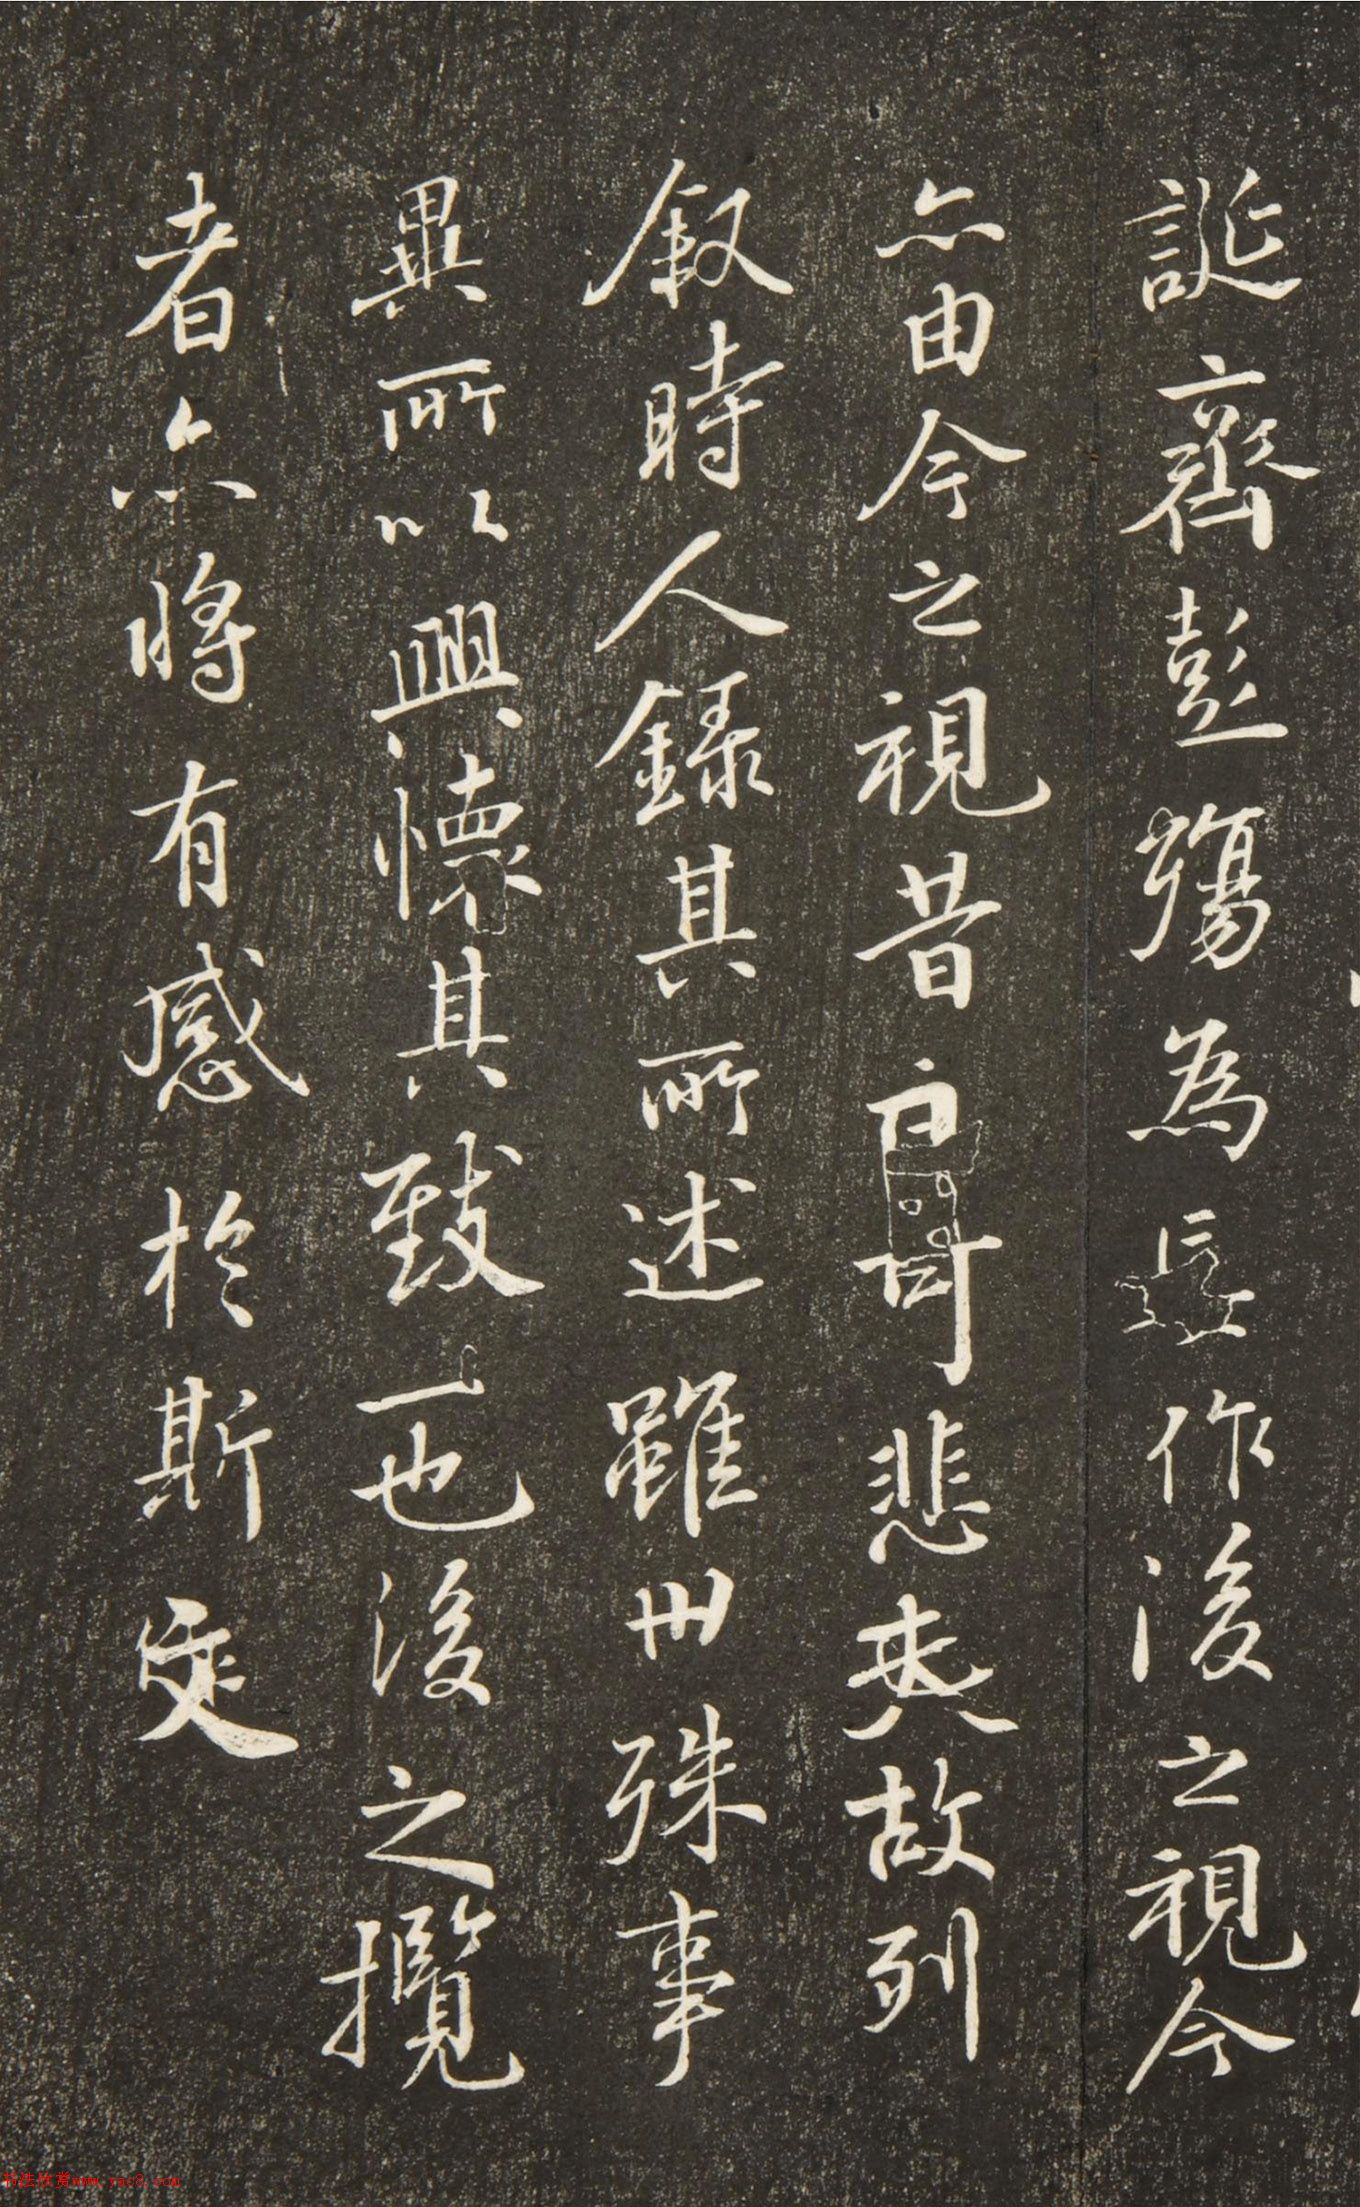 誕齊彭殤為作後之視今
亦由今之視昔悲夫故列
叙時人録其所述雖世殊事
異所以興懷其致一也後之攬
者亦將有感於斯文
书法欣赏www.yac8.com